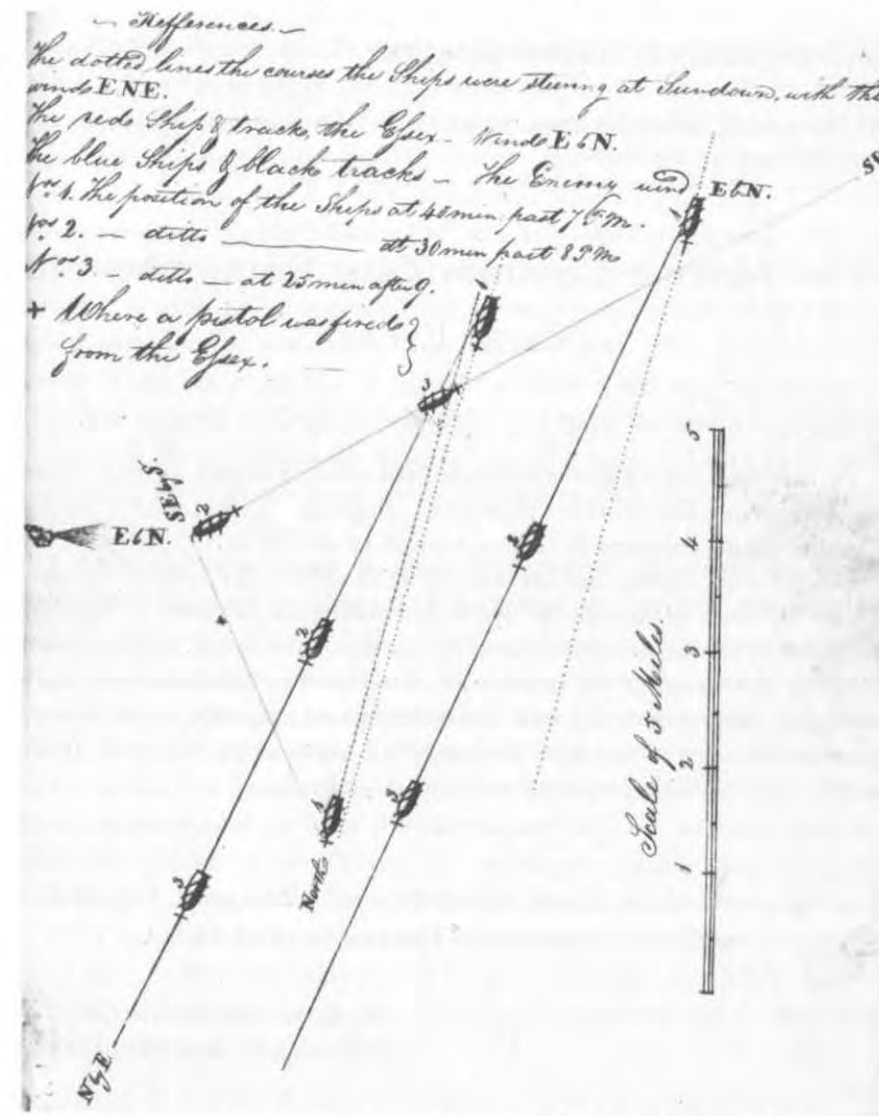 — Refferences. —
The dotted lines the courses the Ships were steering at Sundown, with the
wind ENE.
The red Ship & track, the Essex — Wind EbN.
The blue Ships & black tracks — The Enemy wind EbN.
Nos. 1. The position of the Ships at 40 min past 7 P.M.
Nos. 2. — ditto — at 30 min past 8 PM
Nos 3 — ditto — at 25 min after 9.
+ Where a pistol was fired }
from the Essex.
SE
1
1
3
SEbyS
2
EbN.
2
2
1
3
3
NbE
Scale of 5 Miles
5
4
3
2
1